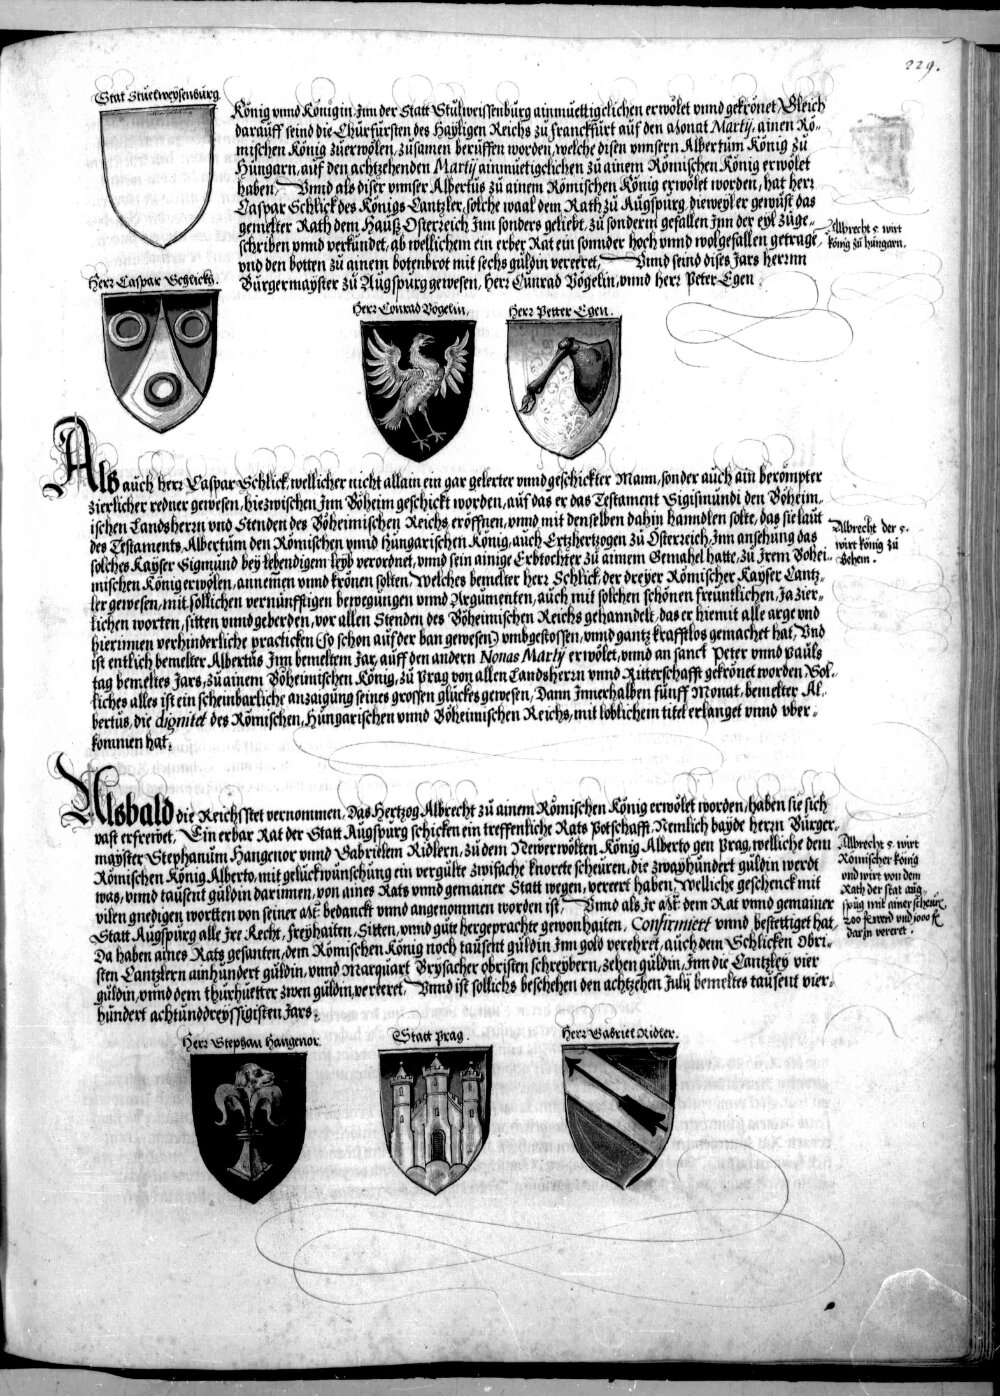 229.
Stat Stuelweysenburg
König vnnd Königin Jnn der Statt Stůlweissenburg ainmuettigclichen erwölet vnnd gekrönet, Gleich
darauff seind die Chürfürsten des Hayligen Reichs zů franckfurt auf den Monat Martij, ainen Rö-
mischen König zuerwölen, zusamen berüffen worden, welche disen vnnsern Albertum König zů
Hungarn, auf den achtzehenden Martij ainmuetigclichen zů ainem Römischen König erwölet
haben, Vnnd als diser vnnser Albertůs zů ainem Römischen König erwölet worden, hat herr
Caspar Schlick des Königs Cantzler, solche waal dem Rath zů Augspurg, dieweyl er gewust das
gemelter Rath dem Hauß Osterreich Jnn sonders geliebt, zů sonderm gefallen Jnn der eyl zůge-
schriben vnnd verkündet, ab wellichem ein erber Rat ein sonnder hoch vnnd wolgefallen getragē,
vnd den botten zů ainem botenbrot mit sechs guldin vereeret, Vnnd seind dises Jars herrnn
Bürgermayster zů Augspurg gewesen, Herr Cunrad Vögelin, vnnd herr Peter Egen
Albrecht 5. wirt
könig zů hungarn.
Herr Caspar Schlicks.
Herr Conrad Vögelin,
Herr Petter Egen.
Als auch herr Caspar Schlick, wellicher nicht allain ein gar gelerter vnnd geschickter Mann, sonder auch ain berömpter
zierlicher redner gewesen, hiezwischen Jnn Böheim geschickt worden, auf das er das Testament Sigismundi den Böheim-
ischen Landsherrn vnd Stenden des Böheimischen Reichs eröffnen, vnnd mit denselben dahin hanndlen solte, das sie laůt
des Testaments, Albertum den Römischen vnnd Hungarischen König, auch Ertzhertzogen zů Osterreich, Jnn ansehung das
solches Kayser Sigmund bey lebendigem leyb verordnet, vnnd sein ainige Erbtochter zů ainem Gemahel hatte, zů Jrem Böhei-
mischen König erwölen, annemen vnnd krönen solten, Welches bemelter herr Schlick, der dreyer Römischer Kayser Cantz-
ler gewesen, mit sollichen vernünfftigen bewegungen vnnd Argumenten, auch mit solchen schönen freuntlichen, Ja zier-
lichen worten, sitten vnnd geberden, vor allen Stenden des Böheimischen Reichs gehanndelt, das er hiemit alle arge vnd
hierinnen verhinderliche practicken (so schon auf der ban gewesen) vmbgestossen, vnnd gantz krafftlos gemachet hat, Vnd
ist entlich bemelter Albertůs Jnn bemeltem Jar, auff den andern Nonas Martij erwölet, vnnd an sanct Peter vnnd Pauls
tag bemeltes Jars, zů ainem Böheimischen König, zů Prag von allen Landsherrn vnnd Ritterschafft gekrönet worden, Sol-
liches alles ist ein scheinbarliche anzaigung seines grossen glückes gewesen, Dann Jnnerhalben fünff Monat, bemelter Al-
bertůs, die dignitet des Römischen, Hungarischen vnnd Böheimischen Reichs, mit loblichem titel erlanget vnnd vber-
kommen hat.
Albrecht der 5.
wirt könig zů
Behem.
Alsbald die Reichsstet vernommen, Das Hertzog Albrecht zů ainem Römischen König erwölet worden, haben sie sich
vast erfreẅet, Ein erbar Rat der Statt Augspurg schicken ein treffenliche Rats Potschafft, Nemlich bayde herrn Bürger-
mayster Stephanum Hangenor vnnd Gabrielem Ridlern, zů dem Newerwölten König Alberto gen Prag, welliche dem
Römischen König Alberto, mit gelückwünschung ein vergülte zwifache knorete scheüren, die zwayhundert guldin werdt
was, vnnd tausent guldin darinnen, von aines Rats vnnd gemainer Statt wegen, vereert haben, Welliche geschenck mit
vilen gnedigen wortten von seiner Mt: bedanckt vnnd angenommen worden ist, Vnnd als Jr Mt: dem Rat vnnd gemainer
Statt Augspurg alle Jre Recht, freyhaiten, Sitten, vnnd güte hergeprachte gewonhaiten, Confirmiert vnnd bestettiget hat,
Da haben aines Rats gesanten, dem Römischen König noch tausent guldin Jnn gold verehret, auch dem Schlicken Obri-
sten Cantzlern ainhundert guldin, vnnd Marquart Brysacher obristen schreybern, zehen guldin, Jnn die Cantzley vier
guldin, vnnd dem thurhuetter zwen guldin, vereeret, Vnnd ist sollichs beschehen den achtzehen Julij bemeltes tausent vier-
hundert achtunddreyssigisten Jars.
Albrecht 5. wirt
Römischer könig
vnd wirt von dem
Rath der stat aug-
spurg mit ainer scheur
200 fl werd vnd 1000 fl
darin vereret.
Herr Stephan Hangenor.
Statt Prag.
Herr Gabriel Ridler.